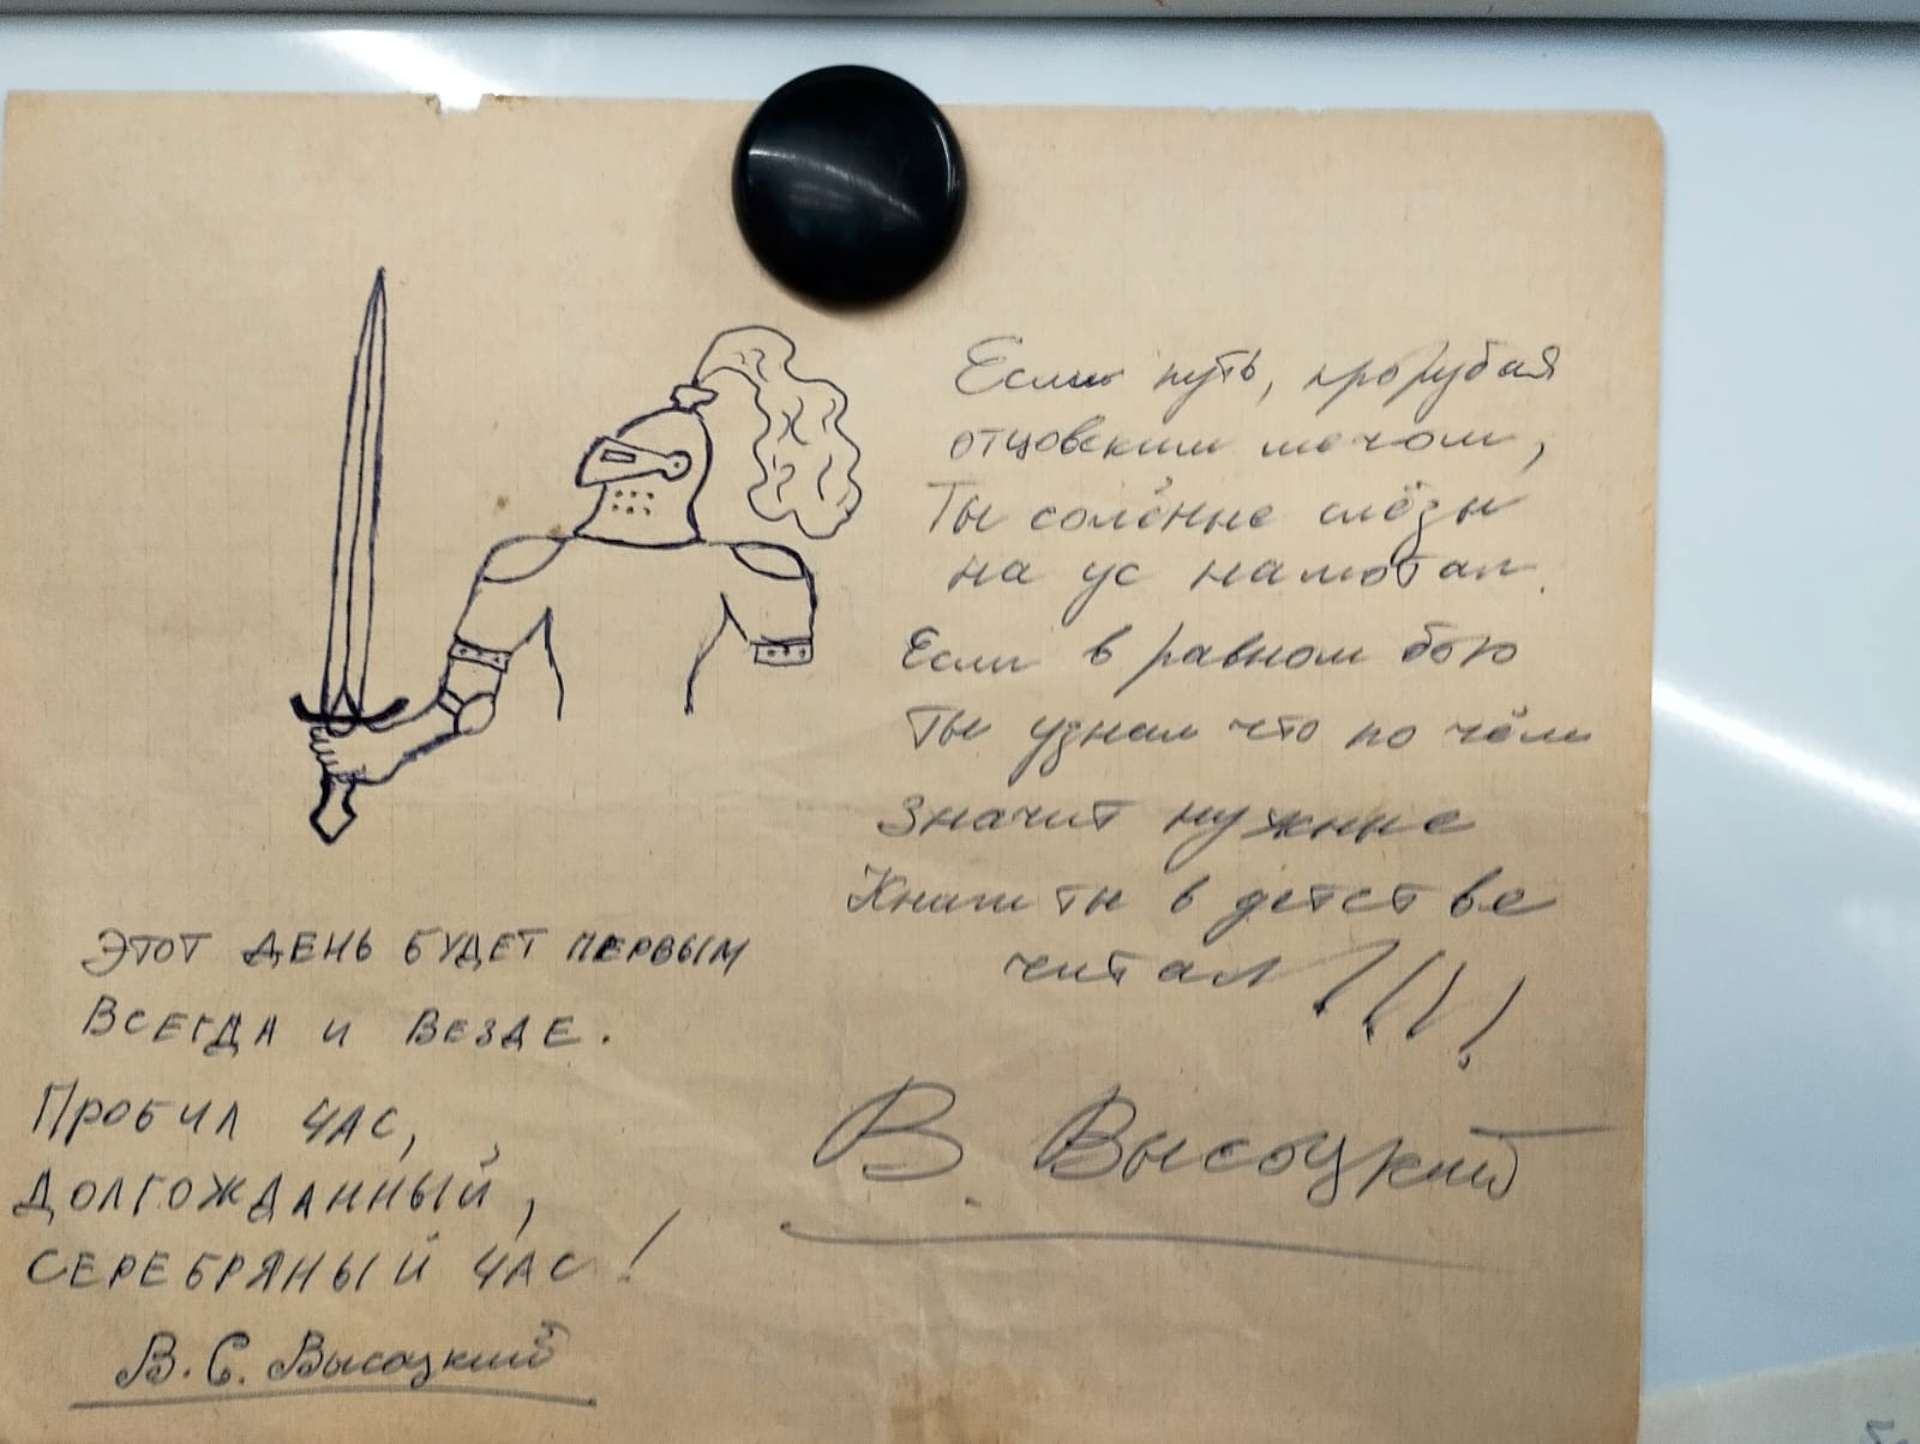 Если путь, прорубая
отцовским мечом,
Ты солёные слёзы
на ус намотал.
Если в равном бою
Ты узнал что по чём
Значит нужные
Книги ты в детстве
читал!!!!
В. Высоцкий
Этот день будет первым
Всегда и Везде.
Пробил час,
долгожданный,
серебряный час!
В. С. Высоцкий